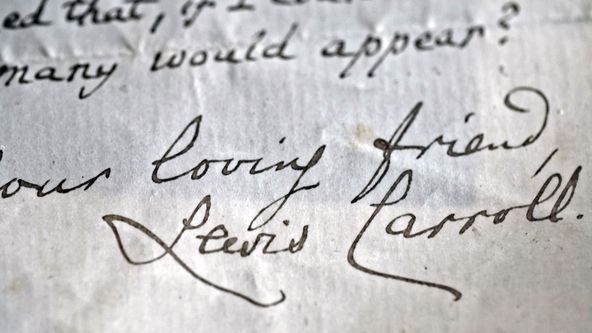 ed that, if I cou
many would appear?
our loving friend,
Lewis Carroll.